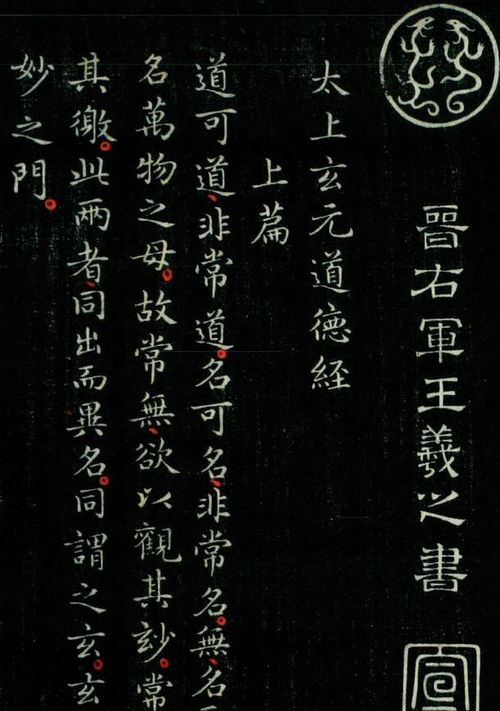 晉右軍王羲之書
太上玄元道德經
上篇
道可道、非常道。名可名、非常名。無、名
名萬物之母。故常無、欲以觀其玅。常
其徼。此兩者、同出而異名。同謂之玄。玄
妙之門。